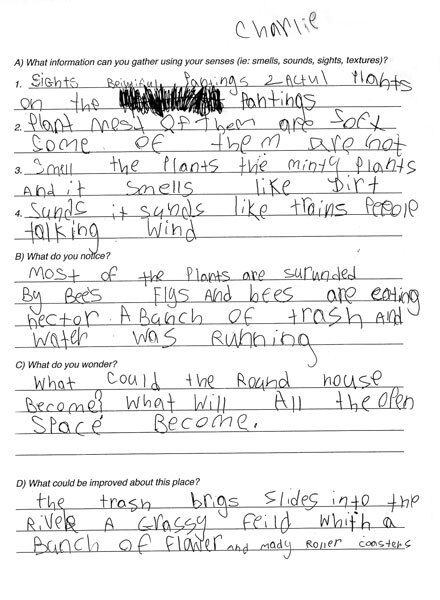 Charlie
A) What information can you gather using your senses (ie: smells, sounds, sights, textures)?
1. Sights Beiwiful Pantings 2 Actul Plants
on the Pantings
2. Plant most of them are Soft
Some of them are not
3. Smell the Plants the minty Plants
And it Smells like Dirt
4. Sunds it sunds like trains PeePle
talking Wind
B) What do you notice?
Most of the Plants are surunded
By Bees Flys And bees are eating
nector A Banch of trash And
water was Running
C) What do you wonder?
What Could the Round house
Become? What Will All the open
Space Become.
D) What could be improved about this place?
the trash brigs Slides into the
River A Grassy Feild Whith a
Bunch of Flawer and mady Roller coasters